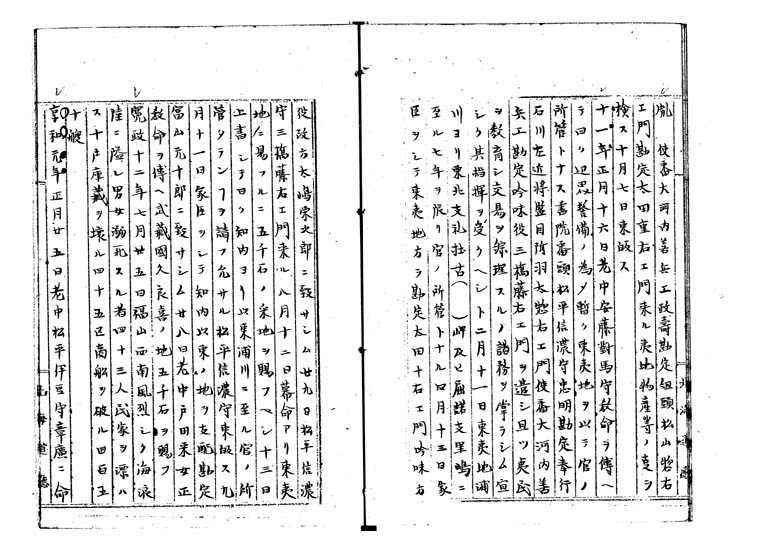 胤 使番大河内善兵工政壽勘定組頭松山惣右
工門勘定太田直右工門来ル夷地物産等ノ夏ヲ
検ス十月七日東皈ス
十一年正月十六日老中安藤對馬守敎命ヲ傳ヘ
テ曰ク辺思警備ノ為メ暫ク東夷地ヲ以テ官ノ
所管トナス書院番頭松平信濃守忠明勘定奉行
石川左近将監目附羽太惣右工門使番大河内善
兵工勘定吟味役三橋藤右工門ヲ遣シ且ツ夷民
ヲ教育シ交易ヲ綜理スルノ諸務ヲ掌ラシム宜
シク其指揮ヲ受クヘシト二月十一日東夷地浦
川ヨリ東北支礼拉古()岬及ヒ屈諾支里嶋ニ
至ル七年ヲ限リ官ノ所管トナル四月十三日家
臣ヲシテ東夷地方ヲ勘定太田十右工門吟味方
從政方太嶋榮次郎ニ致サシム廿九日松平信濃
守三橋藤右工門来ル八月十二日幕命アリ東夷
地ニ易フルニ五千石ノ采地ヲ賜フヘシ十三日
上書シテ曰ク知内ヨリ以東浦川ニ至ル官ノ所
管タランヿヲ請フ允サル松平信濃守東皈ス九
月十一日家臣ヲシテ知内以東ノ地ヲ支配勘定
富山元十郎ニ致サシム廿八日老中戸田采女正
敎命ヲ傳ヘ武藏國久良喜ノ地五千石ヲ賜フ
寛政十二年七月廿五日福山西南風烈シク海浪
陸ニ溢レ男女溺死スル者四十三人民家ヲ漂ハ
ス十戸庫藏ヲ壊ル四十五区商船ヲ破ル四百五
十艘
享和元年正月廿五日老中松平伊豆守章廣ニ命
北海道廳